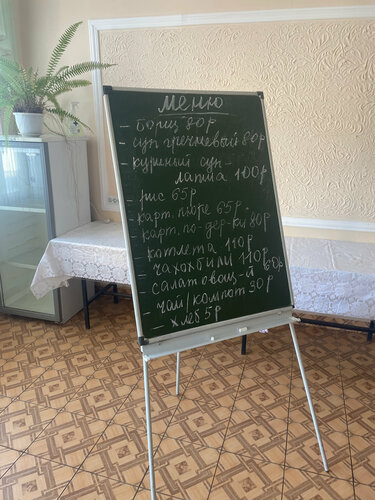 Меню
- борщ 80 р
- суп гречневый 80 р
- куриный суп -
лапша 100 р
- рис 65 р
- карт. пюре 65 р.
- карт. по-дер-ки 80 р
- котлета 110 р
- чахохбили 110 р
- салат овощ-й 60 р
- чай/компот 30 р
- хлеб 5 р